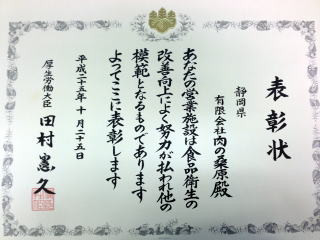 表彰状
静岡県
有限会社肉の桑原殿
あなたの営業施設は食品衛生の
改善向上によく努力が払われ他の
模範となるものであります
よってここに表彰します
平成二十五年十月二十五日
厚生労働大臣 田村憲久